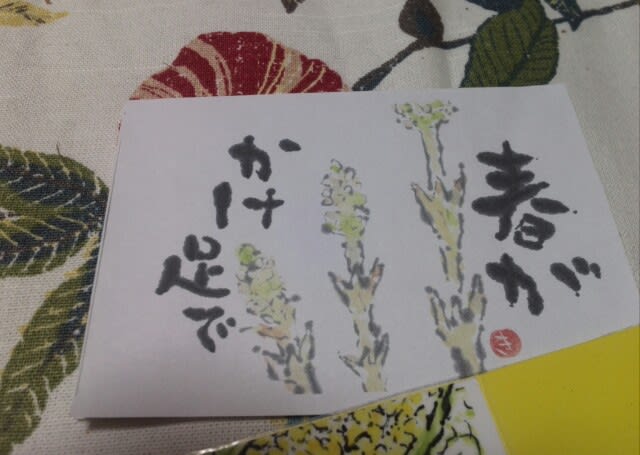 春が
かけ
足で